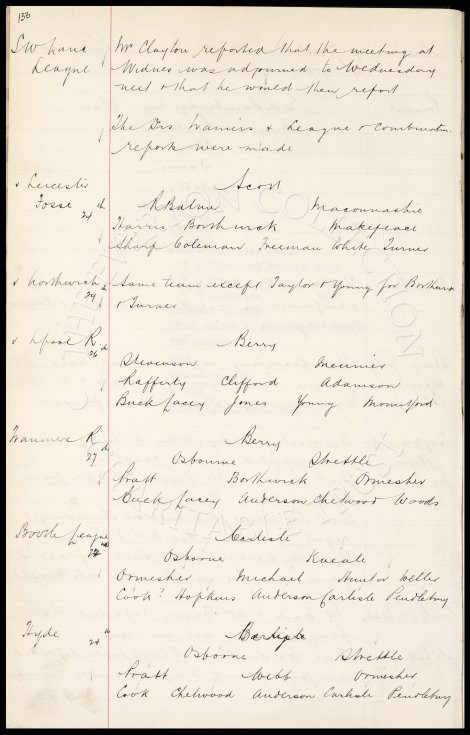 156
S W Lanc League
Mr Clayton reported that the meeting at
Widnes was adjourned to Wednesday
next & that he would then report
The Trs Trainers & League & Combination
reports were made
v Leicester Fosse 24th
Scott
R Balmer Maconnachie
Harris Borthwick Makepeace
Sharp Coleman Freeman White Turner
v Northwich 29th
Same team except Taylor & Young for Borthwick
& Turner
v Lpool R 26th
Berry
Stevenson Meunier
Rafferty Clifford Adamson
Buck Lacey Jones Young Mountford
Tranmere R 27th
Berry
Osbourne Strettle
Pratt Borthwick Ormesher
Buck Lacey Anderson Chetwood Woods
Bootle League 24th
Carlisle
Osborne Kneale
Ormesher Michael Hunter Weller
Cook? Hopkins Anderson Carlisle Pendlebury
Hyde 24th
Osborne Strettle
Pratt Webb Ormesher
Cook Chetwood Anderson Carlisle Pendlebury